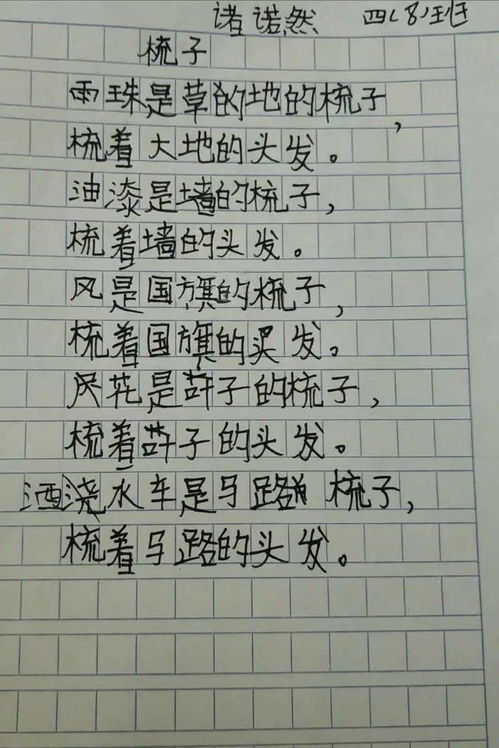 诸诺然 四(8)班
梳子
雨珠是草的地的梳子,
梳着大地的头发。
油漆是墙的梳子,
梳着墙的头发。
风是国旗的梳子,
梳着国旗的头发。
是子的梳子,
梳着子的头发。
洒浇水车是马路的梳子,
梳着马路的头发。